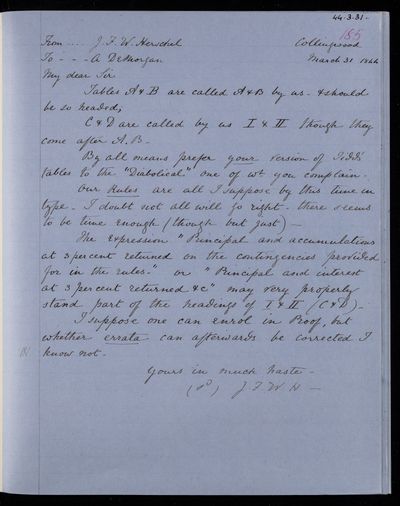 44.3.31.
185
From .... J. F. W. Herschel Collingwood
To - - - A DeMorgan March 31 1844
My dear Sir
Tables A & B are called A & B by us - & should
be so headed,
C & D are called by us I & II though they
come after A. B -
By all means prefer your version of
tables to the "Diabolical" one of wh you complain -
Our Rules are all I suppose by this time in
type - I doubt not all will go right - there seems
to be time enough (though but just) -
The expression "Principal and accumulations
at 3 per cent returned on the contingencies provided
for in the rules -" or "Principal and interest
at 3 per cent returned &c" may very properly
stand part of the headings of I & II (C & D) -
I suppose one can enrol in Proof, but
whether errata can afterwards be corrected I
know not -
Yours in much haste -
J. F. W. H -